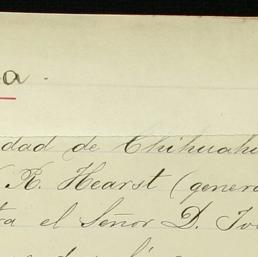 a.
dad de Chihuahu
R. Hearst (genera
tra el Señor D. Jo